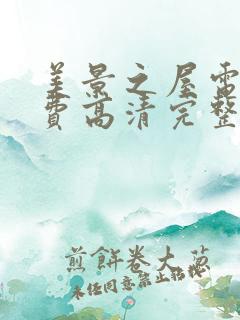 美景之屋電
費高清完整
煎餅卷大蔥
未经同意禁止转载